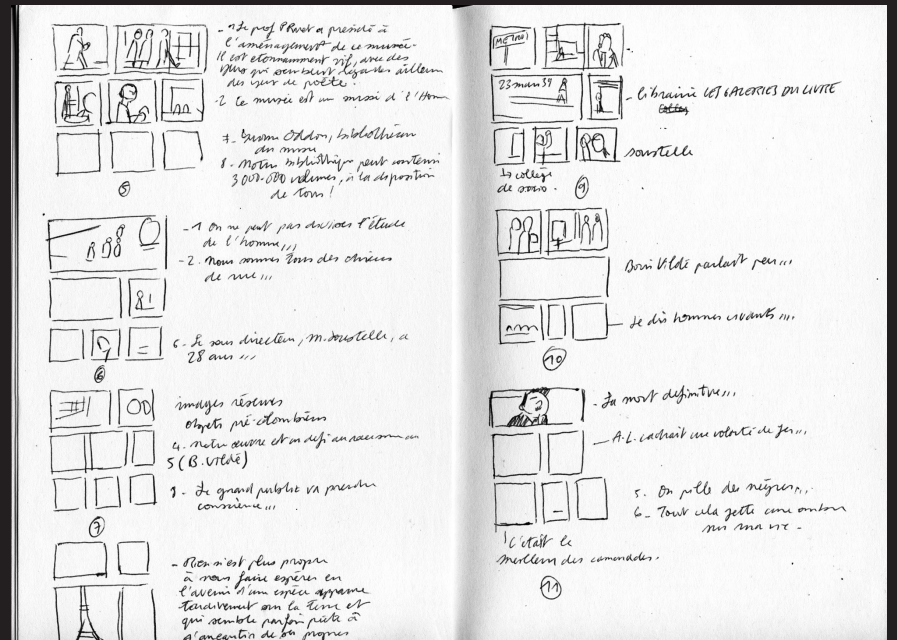 - 1 Le prof P Rivet a présidé à
l'aménagement de ce musée.
Il est étonnamment vif, avec des
yeux qui semblent
des yeux de poète.
- 2 Ce musée est un musée de l'Homme
7. Yvonne Oddon, bibliothécaire
du musée
8. Notre bibliothèque peut contenir
3 000.000 volumes, à la disposition
de tous !
5
- 1 On ne peut pas diviser l'étude
de l'homme,,,
- 2. Nous sommes tous des chiens
de rue,,,
6. Le sous directeur, M. Soustelle, a
28 ans ,,,
6
images réserves
objets pré-colombiens
4. Notre œuvre est un défi au racisme
5 (B. Vildé)
8. Le grand public va prendre
conscience,,,
7
- Rien n'est plus propre
à nous faire espérer en
l'avenir d'une espèce apparue
tardivement sur la terre et
qui semble parfois prête à
s'anéantir de ses propres
METRO
23 mars 39
- librairie LES GALERIES DU LIVRE
soustelle
collège
de socio.
9
Boris Vildé parlait peu,,,
- Je dis hommes vivants,,,
10
- La mort définitive,,,
- A.L. cachait une volonté de fer,,,
5. On pille des nègres,,,
6 - Tout cela jette une ombre
sur ma vie -
C'était le
meilleur des camarades.
11